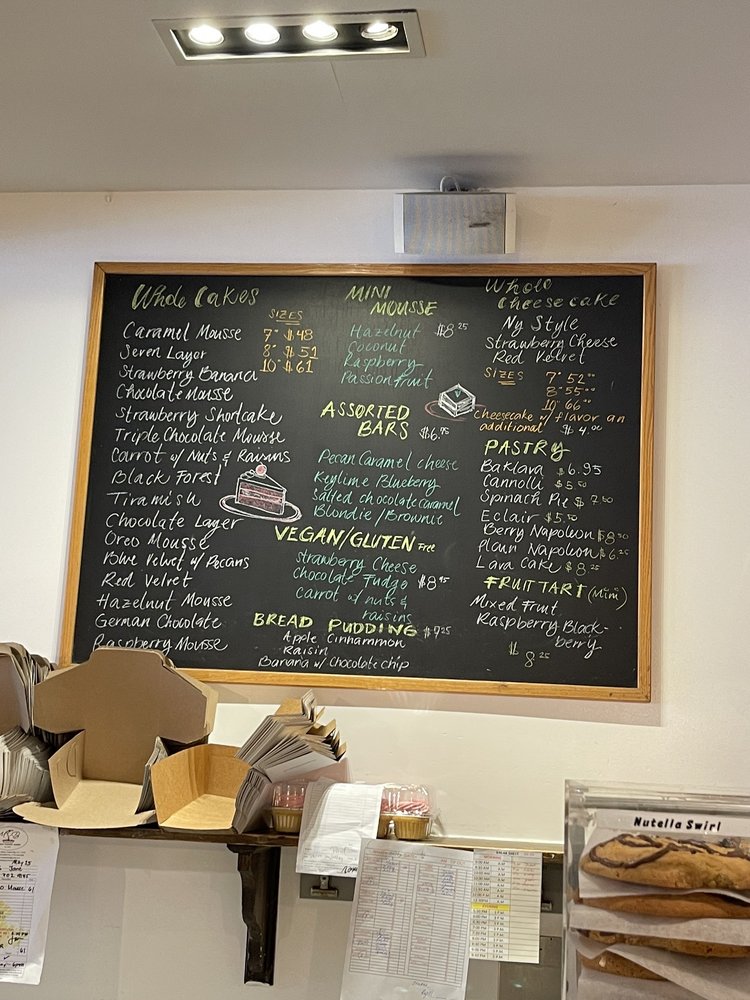 Whole Cakes
SIZES
7" $48
8" $51
10" $61
Caramel Mousse
Seven Layer
Strawberry Banana
Chocolate Mousse
Strawberry Shortcake
Triple Chocolate Mousse
Carrot w/ Nuts & Raisins
Black Forest
Tiramisu
Chocolate Layer
Oreo Mousse
Blue Velvet w/ Pecans
Red Velvet
Hazelnut Mousse
German Chocolate
Raspberry Mousse
MINI
MOUSSE
Hazelnut $8.25
Coconut
Raspberry
Passionfruit
ASSORTED
BARS $6.75
Pecan Caramel cheese
Keylime Blueberry
Salted chocolate caramel
Blondie/Brownie
VEGAN/GLUTEN Free
Strawberry Cheese
Chocolate Fudge $8.45
Carrot w/ nuts &
raisins
BREAD PUDDING $7.25
Apple Cinnammon
Raisin
Banana w/ Chocolate chip
Whole
Cheesecake
Ny Style
Strawberry Cheese
Red Velvet
SIZES
7" 52.00
8" 55.00
10" 66.00
Cheesecake w/ flavor an
additional $4.00
PASTRY
Baklava $6.95
Cannolli $5.50
Spinach Pie $7.50
Eclair $5.50
Berry Napoleon $8.50
Plain Napoleon $6.25
Lava Cake $8.25
FRUIT TART (Mini)
Mixed Fruit
Raspberry Black-
berry
$8.25
Nutella Swirl
May 25
June